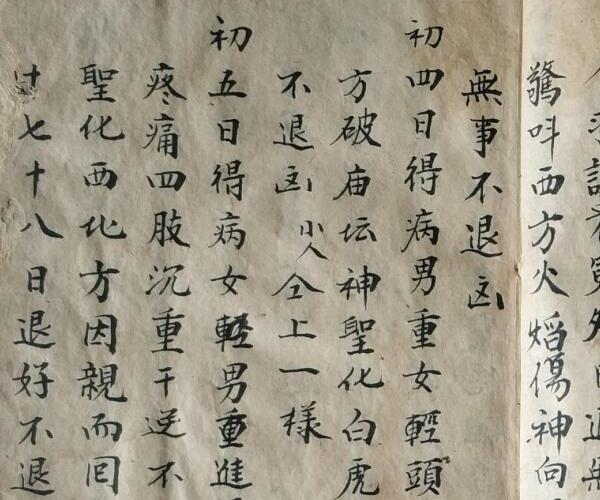 驚呌西方火焰傷神向
無事不退凶
初四日得病男重女輕頭
方破庙坛神聖化白虎
不退凶小人仝上一樣
初五日得病女輕男重進
疼痛四肢沉重干送不
聖化西北方因親而囙
廿七十八日退好不退